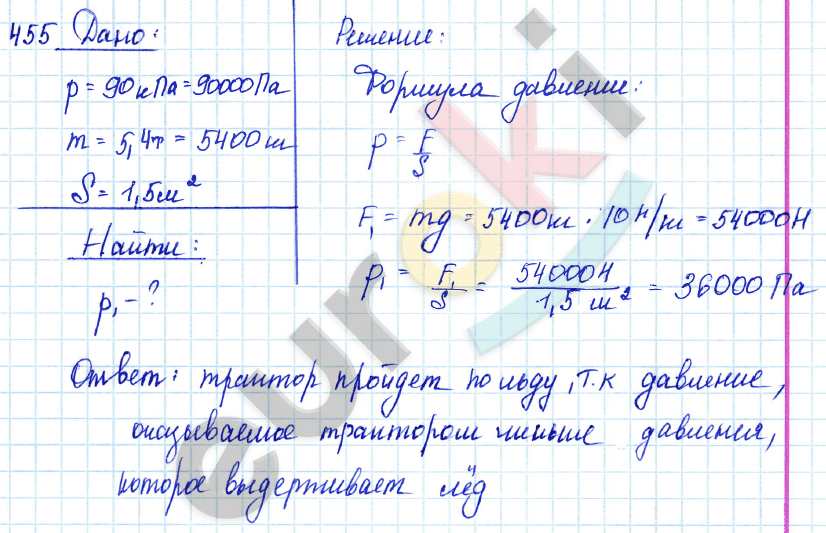 455 Дано:
p = 90 кПа = 90000 Па
m = 5,4т = 5400 кг
S = 1,5 м²
Найти:
p₁ - ?
Решение:
Формула давление:
p = F/S
F₁ = mg = 5400 кг · 10 Н/кг = 54000 Н
p₁ = F₁/S = 54000 Н/1,5 м² = 36000 Па
Ответ: трактор пройдет по льду, т.к давление,
оказываемое трактором меньше давления,
которое выдерживает лёд
euroki